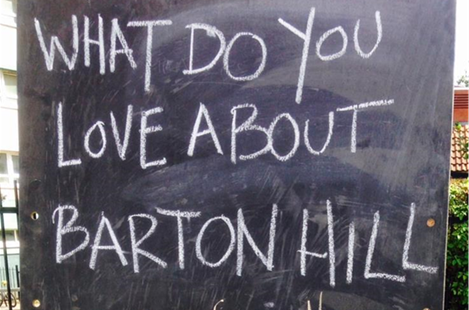 WHAT DO YOU
LOVE ABOUT
BARTON HILL